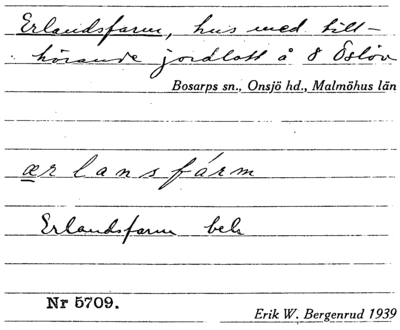 Erlandsfarm, hus med till-
hörande jordlott å 8 Öslöv
Bosarps sn., Onsjö hd., Malmöhus län
ærlansfárm
Erlandsfarm bek
Nr 5709.
Erik W. Bergenrud 1939